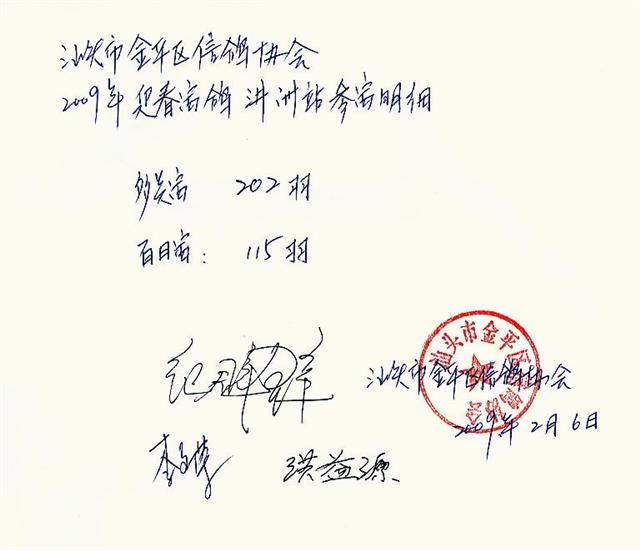 汕头市金平区信鸽协会
2009年迎春赛鸽 洪洲站参赛明细
202羽
百日赛： 115羽
汕头市金平区信鸽协会
汕头市金平区信鸽协会
2009年2月6日
洪益源